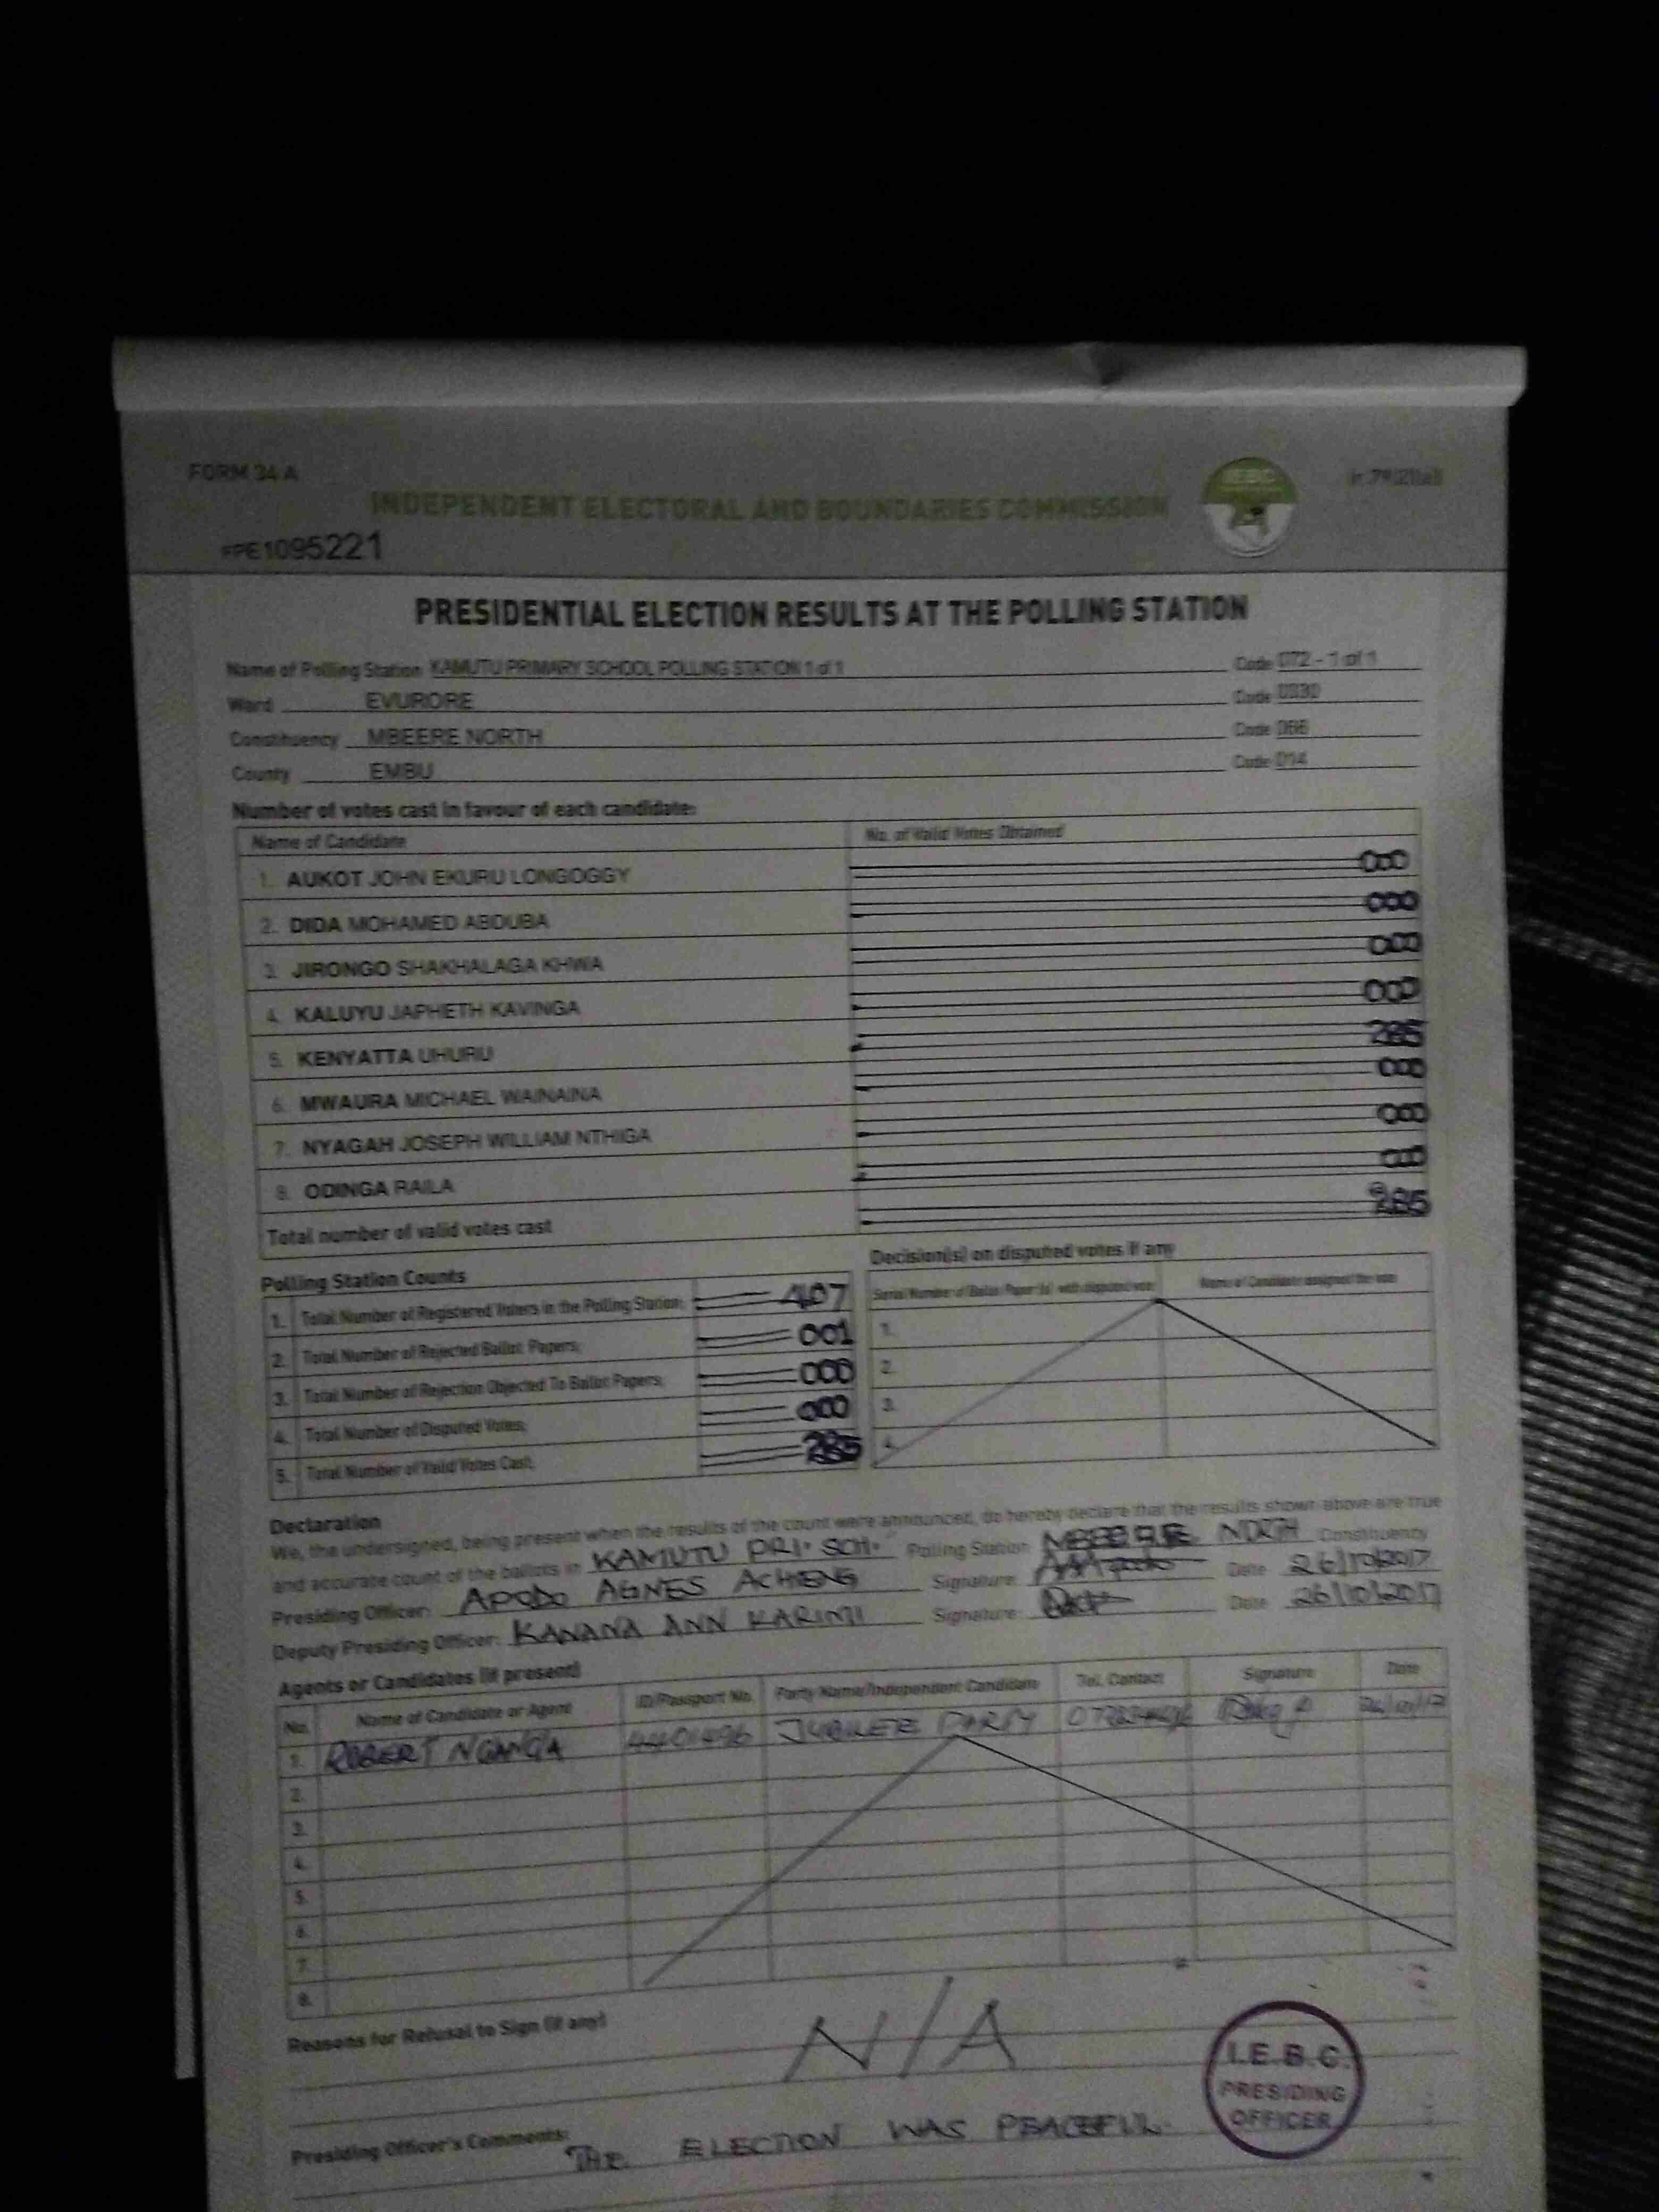 FORM 34 A
INDEPENDENT ELECTORAL AND BOUNDARIES COMMISSION
IEBC
FPE1095221
PRESIDENTIAL ELECTION RESULTS AT THE POLLING STATION
Name of Polling Station KAMUTU PRIMARY SCHOOL POLLING STATION 1 of 1 Code 072 - 1 of 1
Ward EVURORE Code
Constituency MBEERE NORTH Code
County EMBU Code 014
Number of votes cast in favour of each candidate:
Name of Candidate No. of Valid Votes Obtained
1. AUKOT JOHN EKURU LONGOGGY 000
2. DIDA MOHAMED ABDUBA 000
3. JIRONGO SHAKHALAGA KHWA 000
4. KALUYU JAPHETH KAVINGA 000
5. KENYATTA UHURU 285
6. MWAURA MICHAEL WAINAINA 000
7. NYAGAH JOSEPH WILLIAM NTHIGA 000
8. ODINGA RAILA 000
Total number of valid votes cast 285
Polling Station Counts
1. Total Number of Registered Voters in the Polling Station; 407
2. Total Number of Rejected Ballot Papers; 001
3. Total Number of Rejection Objected To Ballot Papers; 000
4. Total Number of Disputed Votes; 000
5. Total Number of Valid Votes Cast; 285
Decision(s) on disputed votes if any
Serial Number of Ballot Paper(s) with disputed vote Name of Candidate assigned the vote
1.
2.
3.
4.
Declaration
We, the undersigned, being present when the results of the count were announced, do hereby declare that the results shown above are true
and accurate count of the ballots in KAMUTU PRI. SCH. Polling Station MBEERE NORTH Constituency
Presiding Officer: APODO AGNES ACHIENG Signature: Date 26/10/2017
Deputy Presiding Officer: KANANA ANN KARIMI Signature: Date 26/10/2017
Agents or Candidates (if present)
No. Name of Candidate or Agent ID/Passport No. Party Name/Independent Candidate Tel. Contact Signature Date
1. ROBERT NGANGA JUBILEE PARTY
2.
3.
4.
5.
6.
7.
8.
Reasons for Refusal to Sign (if any)
N/A
I.E.B.C.
PRESIDING
OFFICER
Presiding Officer's Comments:
THE ELECTION WAS PEACEFUL.